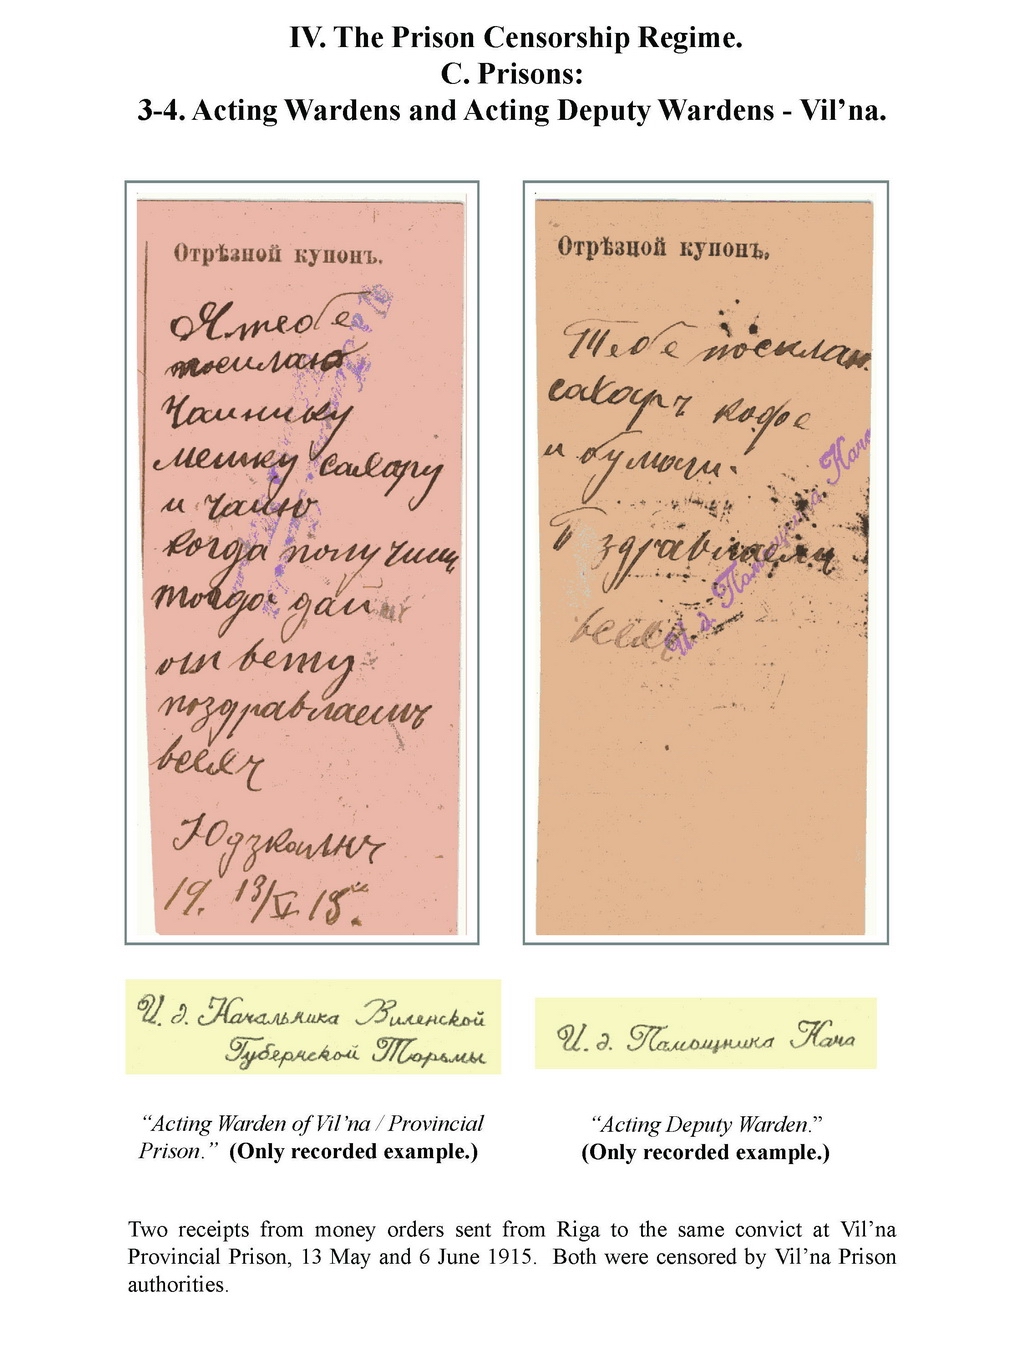 IV. The Prison Censorship Regime.
C. Prisons:
3-4. Acting Wardens and Acting Deputy Wardens - Vil’na.
Отрѣзной купонъ.
Я тебе
посилаю
Чаинику
мешку сахару
и чаию
когда получиш
тогда дай
ответу
поздравлаемъ
всехъ
19. 13/V 15.
Отрѣзной купонъ.
Тебе посилаю
сахаръ кофе
и бумаги.
Поздравлаем
всехъ
И. д. Помощника Нача
И. д. Начальника Виленской
Губернской Тюрьмы
И. д. Помощника Нача
“Acting Warden of Vil’na / Provincial
Prison.” (Only recorded example.)
“Acting Deputy Warden.”
(Only recorded example.)
Two receipts from money orders sent from Riga to the same convict at Vil’na
Provincial Prison, 13 May and 6 June 1915. Both were censored by Vil’na Prison
authorities.